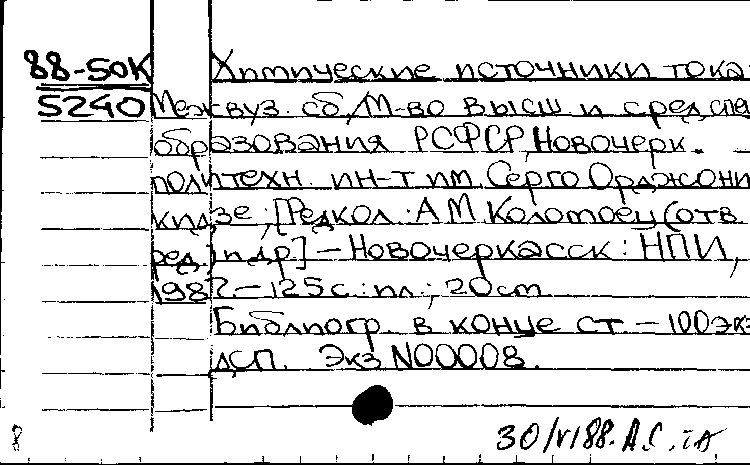 88-50К Химические источники тока
5240 Межвуз. сб/М-во высш и сред спе
образования РСФСР, Новочерк.
политехн. ин-т им. Серго Орджони
кидзе; [Редкол.: А М Колотоец (отв
ред.) и др] – Новочеркасск: НПИ,
1987. – 125 с.: ил.; 20 см
Библиогр. в конце ст – 100 экз
ДСП. Экз N00008.
8 30/VI 88.